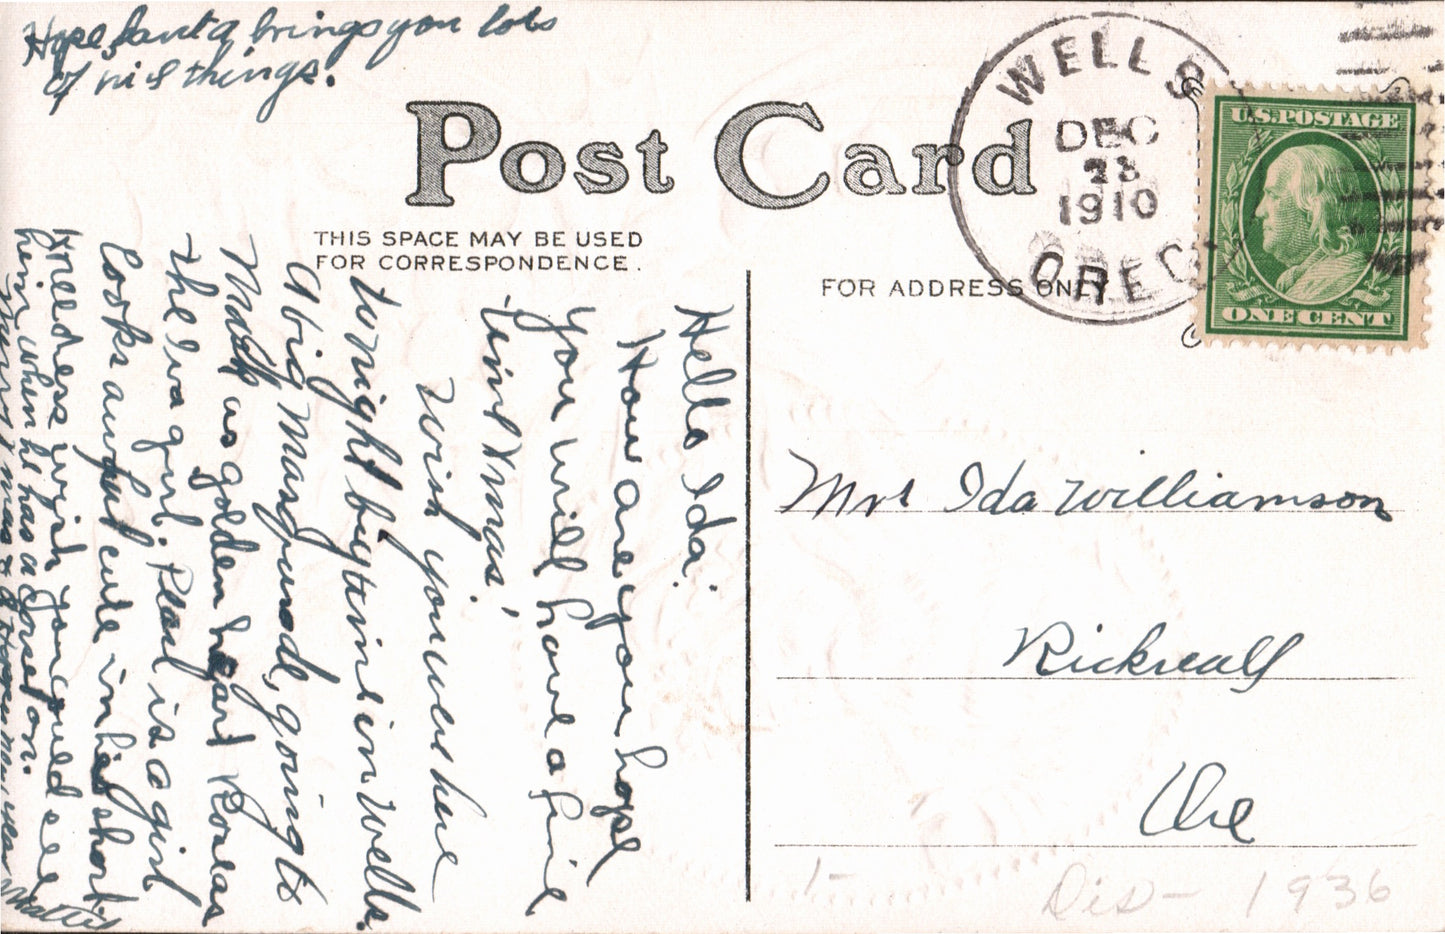 Hope Santa brings you lots
of nice things.
Post Card
THIS SPACE MAY BE USED
FOR CORRESPONDENCE.
FOR ADDRESS ONLY
WELLS
DEC
23
1910
OREG.
U.S. POSTAGE
ONE CENT
Hello Ida.
How are you hope
you will have a fine
time Xmas.
Wish you were here
to night big time in Wells.
A big Masquerade, going to
Mask as golden heart
the Iva girl. Pearl is a girl
looks awful cute in his short
dress wish you could see
him when he has a corset on.
Mrs Ida Williamson
Rickreall
Ore
Dis - 1936